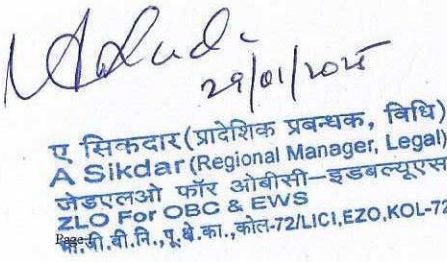 29/01/2025
ए सिकदार (प्रादेशिक प्रबन्धक, विधि)
A Sikdar (Regional Manager, Legal)
जेडएलओ फॉर ओबीसी–इडबल्यूएस
ZLO For OBC & EWS
भा.जी.बी.नि.,पू.क्षे.का.,कोल-72/LICI,EZO,KOL-72